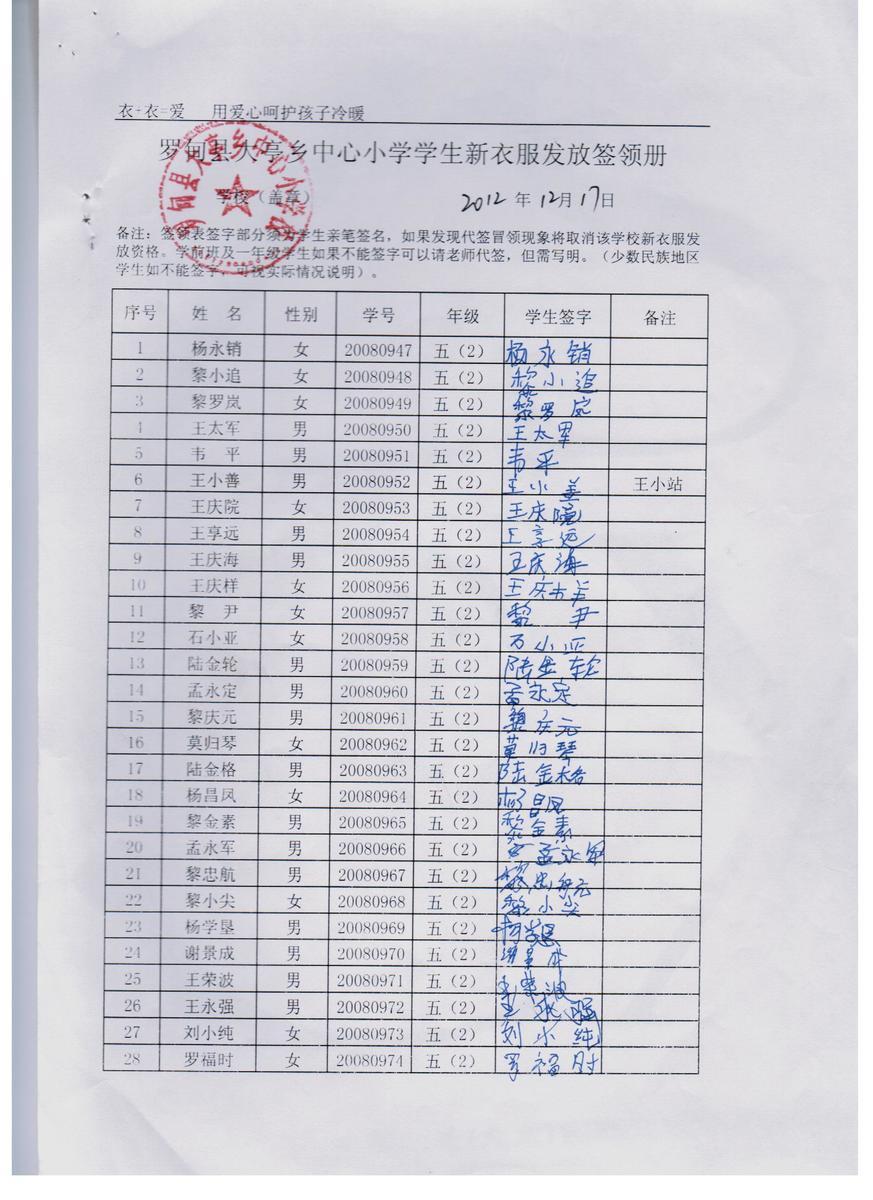 衣+衣=爱 用爱心呵护孩子冷暖
罗甸县大亭乡中心小学学生新衣服发放签领册
罗甸县大亭乡中心小学校
学校（盖章） 2012 年 12月 17日
备注：签领表签字部分须为学生亲笔签名，如果发现代签冒领现象将取消该学校新衣服发
放资格。学前班及一年级学生如果不能签字可以请老师代签，但需写明。（少数民族地区
学生如不能签字，可视实际情况说明）。
序号 姓 名 性别 学号 年级 学生签字 备注
1 杨永销 女 20080947 五（2） 杨永销
2 黎小追 女 20080948 五（2） 黎小追
3 黎罗岚 女 20080949 五（2） 黎罗岚
4 王太军 男 20080950 五（2） 王太军
5 韦 平 男 20080951 五（2） 韦平
6 王小善 男 20080952 五（2） 王小善 王小站
7 王庆院 女 20080953 五（2） 王庆院
8 王享远 男 20080954 五（2） 王享远
9 王庆海 男 20080955 五（2） 王庆海
10 王庆样 女 20080956 五（2） 王庆样
11 黎 尹 女 20080957 五（2） 黎 尹
12 石小亚 女 20080958 五（2） 石小亚
13 陆金轮 男 20080959 五（2） 陆金轮
14 孟永定 男 20080960 五（2） 孟永定
15 黎庆元 男 20080961 五（2） 黎庆元
16 莫归琴 女 20080962 五（2） 莫归琴
17 陆金格 男 20080963 五（2） 陆金格
18 杨昌凤 女 20080964 五（2） 杨昌凤
19 黎金素 男 20080965 五（2） 黎金素
20 孟永军 男 20080966 五（2） 孟永军
21 黎忠航 男 20080967 五（2） 黎忠航
22 黎小尖 女 20080968 五（2） 黎小尖
23 杨学垦 男 20080969 五（2） 杨学垦
24 谢景成 男 20080970 五（2） 谢景成
25 王荣波 男 20080971 五（2） 王荣波
26 王永强 男 20080972 五（2） 王永强
27 刘小纯 女 20080973 五（2） 刘小纯
28 罗福时 女 20080974 五（2） 罗福时